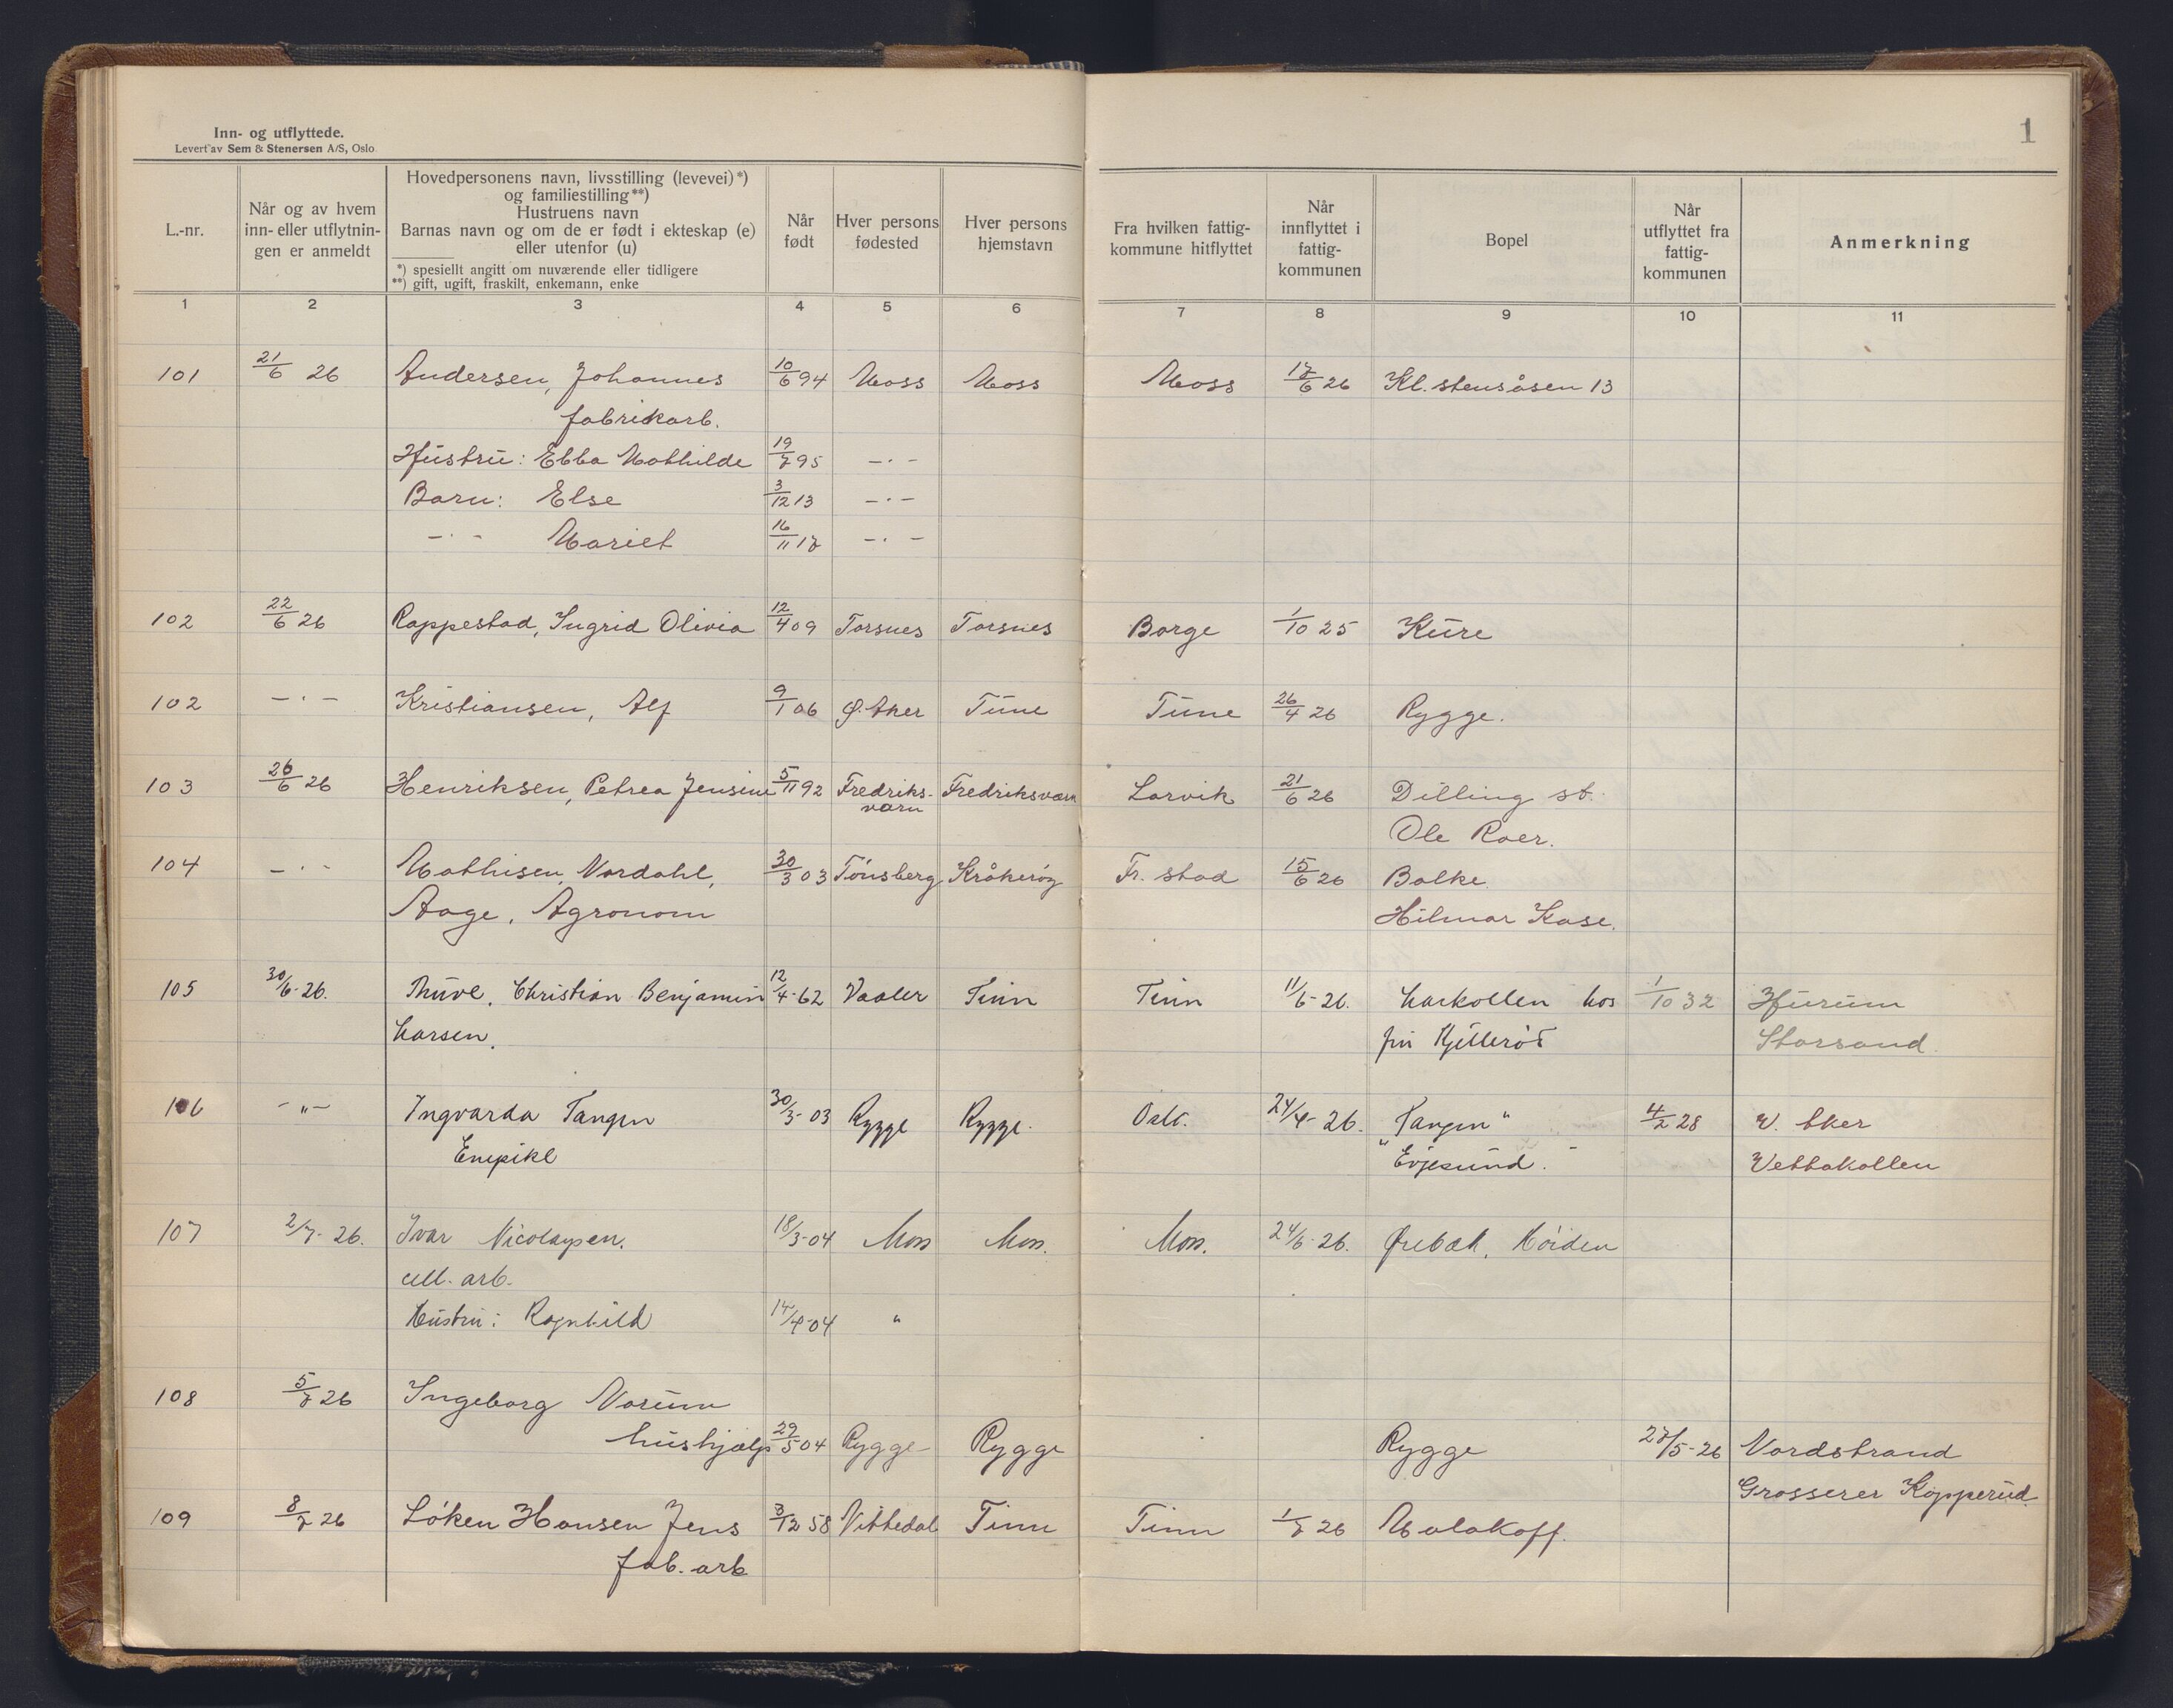 Inn- og utflyttede.
Levert av Sem & Stenersen A/S, Oslo
1
L.-nr.
Når og av hvem
inn- eller utflytnin-
gen er anmeldt
Hovedpersonens navn, livsstilling (levevei)*)
og familiestilling**)
Hustruens navn
Barnas navn og om de er født i ekteskap (e)
eller utenfor (u)
*) spesiellt angitt om nuværende eller tidligere
**) gift, ugift, fraskilt, enkemann, enke
Når
født
Hver persons
fødested
Hver persons
hjemstavn
Fra hvilken fattig-
kommune hitflyttet
Når
innflyttet i
fattig-
kommunen
Bopel
Når
utflyttet fra
fattig-
kommunen
Anmerkning
1 2 3 4 5 6 7 8 9 10 11
101 21/6 26 Andersen, Johannes 10/6 94 Moss Moss Moss 17/6 26 Kl. stensåsen 13
fabrikarb.
Hustru: Ebba Mathilde 19/7 95 -·-
Barn: Else 3/12 13 -·-
-·- Mariet 16/11 17 -·-
102 22/6 26 Rappestad, Ingrid Olivia 12/4 09 Torsnes Torsnes Borge 1/10 25 Kure
102 -·- Kristiansen, Alf 9/1 06 Ø. Aker Tune Tune 26/4 26 Rygge.
103 26/6 26 Henriksen, Petrea Jensine 5/11 92 Fredriks- Fredriksværn Larvik 21/6 26 Dilling st.
værn Ole Roer.
104 -·- Mathisen, Nordahl, 30/3 03 Tönsberg Kråkeröy Fr. stad 15/6 26 Balke.
Aage, Agronom Hilmar Kase.
105 30/6-26. Thuve, Christian Benjamin 12/4-62 Vaaler Tinn Tinn 11/6-26. Larkollen hos 1/10 32 Hurum
Larsen. Storsand.
106 -"- Ingvarda Tangen 30/3-03 Rygge Rygge. Oslo. 24/4-26. "Tangen" 4/2 28 V. Aker
Enepike "Evjesund. Vettakollen
107 2/7-26. Ivar Nicolaysen. 18/3-04 Moss Moss. Moss. 24/6-26. Ørebæk, Höiden
cell. arb.
Hustru: Ragnhild 14/4-04 "
108 5/7 26 Ingeborg Norum
hushjælp 29/5 04 Rygge Rygge Rygge 27/5-26 Nordstrand
Grosserer Kopperud
109 8/7 26 Löken Hansen Jens 3/12 58 Nittedal Tinn Tinn 1/7 26 Malakoff.
fab. arb